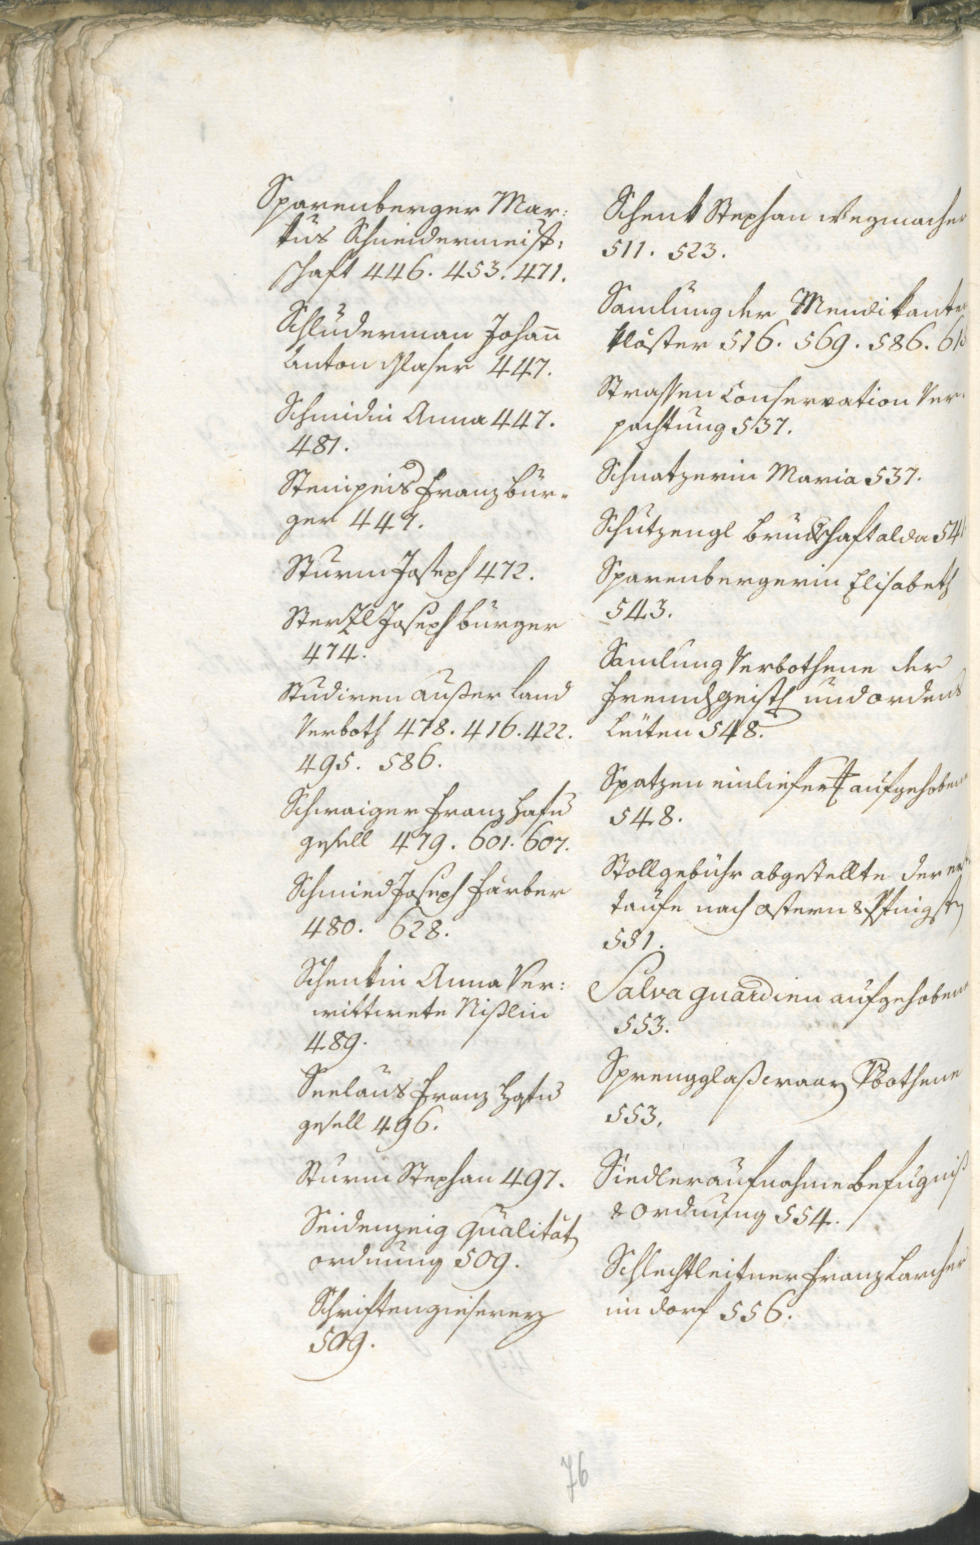 Sparenberger Mar:
kus Schneidermeist:
schaft 446. 453. 471.
Schluderman Johan̅
Anton Glaser 447.
Schmidin Anna 447.
481.
Franz Bür-
ger 447.
Sturm Joseph 472.
Sterzl Joseph Bürger
474.
Studiren ausser Land
Verboth 478. 416. 422.
495. 586.
Schwaiger Franz Hafn
gesell 479. 601. 607.
Schmied Joseph Färber
480. 628.
Schenkin Anna Ver:
wittwete Nißlin
489.
Seelaus Franz
gesell 496.
Sturm Stephan 497.
Seidenzeig Qualität
ordnung 509.
Schriftengieserey
509.
Schenk Stephan Wegmacher
511. 523.
Samlung der Mendikanten
klöster 516. 569. 586.
Strassen Conservation Ver-
pachtung 537.
Schnatzerin Maria 537.
Schutzengl Bruderschaft alda
Sparenbergerin Elisabeth
543.
Samlung Verbothene der
Fremd geistl und ordens
Leüten 548.
Spatzen einliefer aufgehoben
548.
Stollgebühr abgestellte der
taufe nach ostern & Pfingst
551.
Salva guardien aufgehoben
553.
Sprengglaßwaar Vbothene
553.
Siedleraufnahme Befugniß
& Ordnung 554.
Schlechtleitner Franz Larcher
im Dorf 556.
76